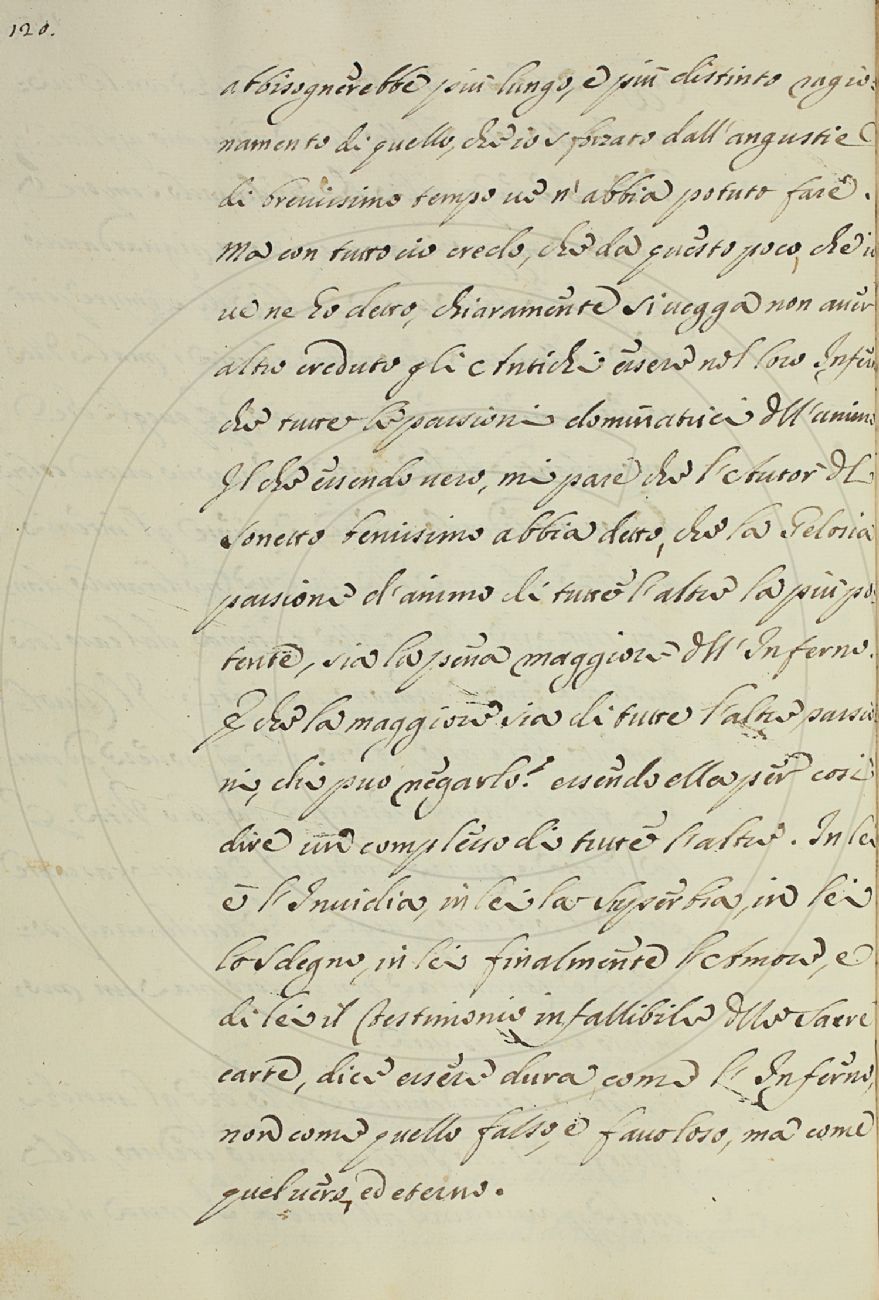 120.
abbisognerebbe più lungo, e più distinto ragio:
namento di quello, che io sforzato dall'angustie
di brevissimo tempo ve n'abbia potuto fare.
Ma con tutto ciò credo, che da questo poco, che io
ve ne ho detto, chiaramente si vegga non aver
altro creduto gli Antichi essere nel loro Infer
che tutte le passioni dominatrici dell'animo
Il che essendo vero, mi pare che l'Autor del
Sonetto benissimo abbia detto, che la Gelosia
passione d'animo di tutte l'altre la più po:
tente, sia la pena maggiore dell'Inferno.
E che la maggiore sia di tutte l'altre passio
ni, chi può negarlo? essendo ella per così
dire un complesso di tutte l'altre. In lei
è l'Invidia, in lei la Superbia, in lei
lo Sdegno, in lei finalmente l'Amore, e
di lei il Testimonio infallibile delle Sacre
carte, dice essere dura come l'Inferno,
non come quello falso, e favoloso, ma come
quel vero, ed eterno.